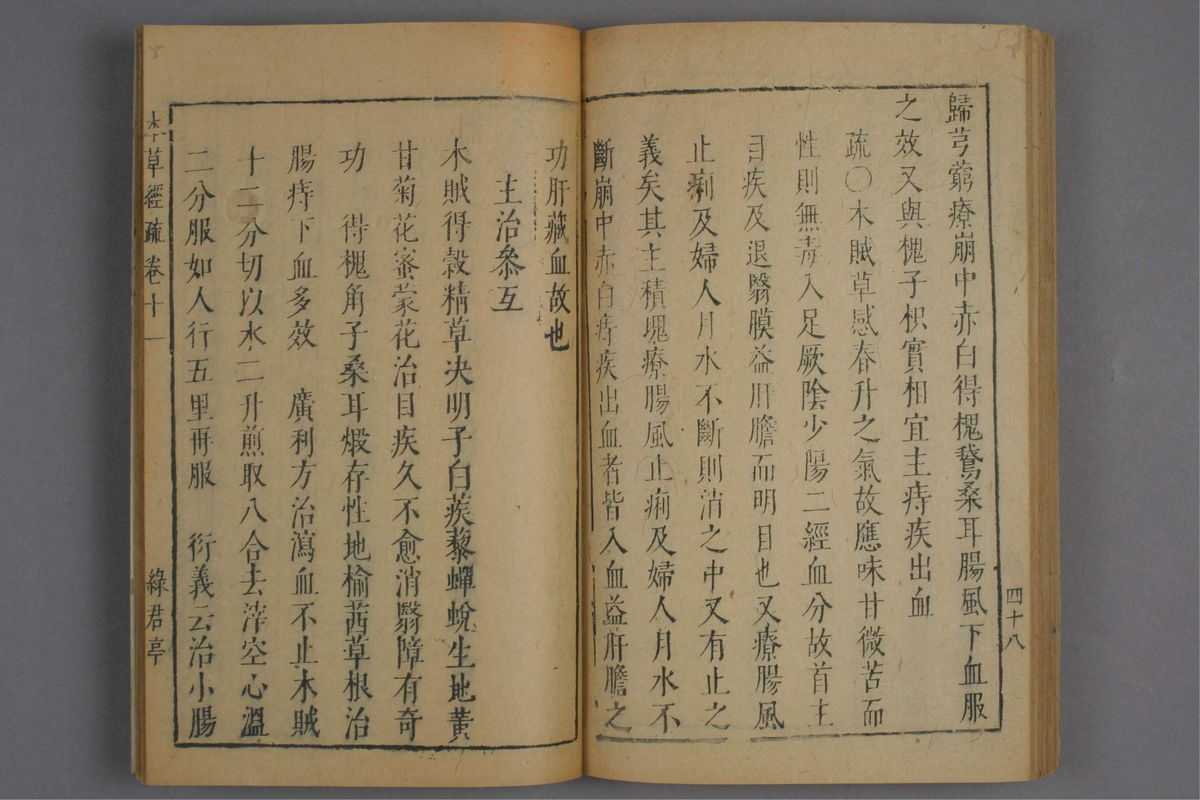 歸芎藭療崩中赤白得槐鵞桑耳腸風下血服
之效又與槐子枳實相宜主痔疾出血
疏〇木賊草感春升之氣故應味甘微苦而
性則無毒入足厥陰少陽二經血分故首主
目疾及退翳膜益肝膽而明目也又療腸風
止痢及婦人月水不斷則消之中又有止之
義矣其主積塊療腸風止痢及婦人月水不
斷崩中赤白痔疾出血者皆入血益肝膽之
四十八
功肝藏血故也
主治叅互
木賊得穀精草决明子白蒺藜蟬蛻生地黃
甘菊花蜜蒙花治目疾久不愈消翳障有奇
功　得槐角子桑耳煅存性地榆茜草根治
腸痔下血多效　廣利方治瀉血不止木賊
十二分切以水二升煎取八合去滓空心溫
二分服如人行五里再服　衍義云治小腸
本草經疏卷十一
綠君亭